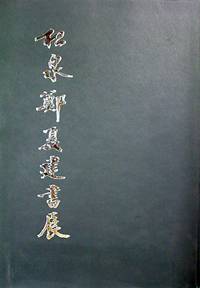 松泉鄭夏建書展